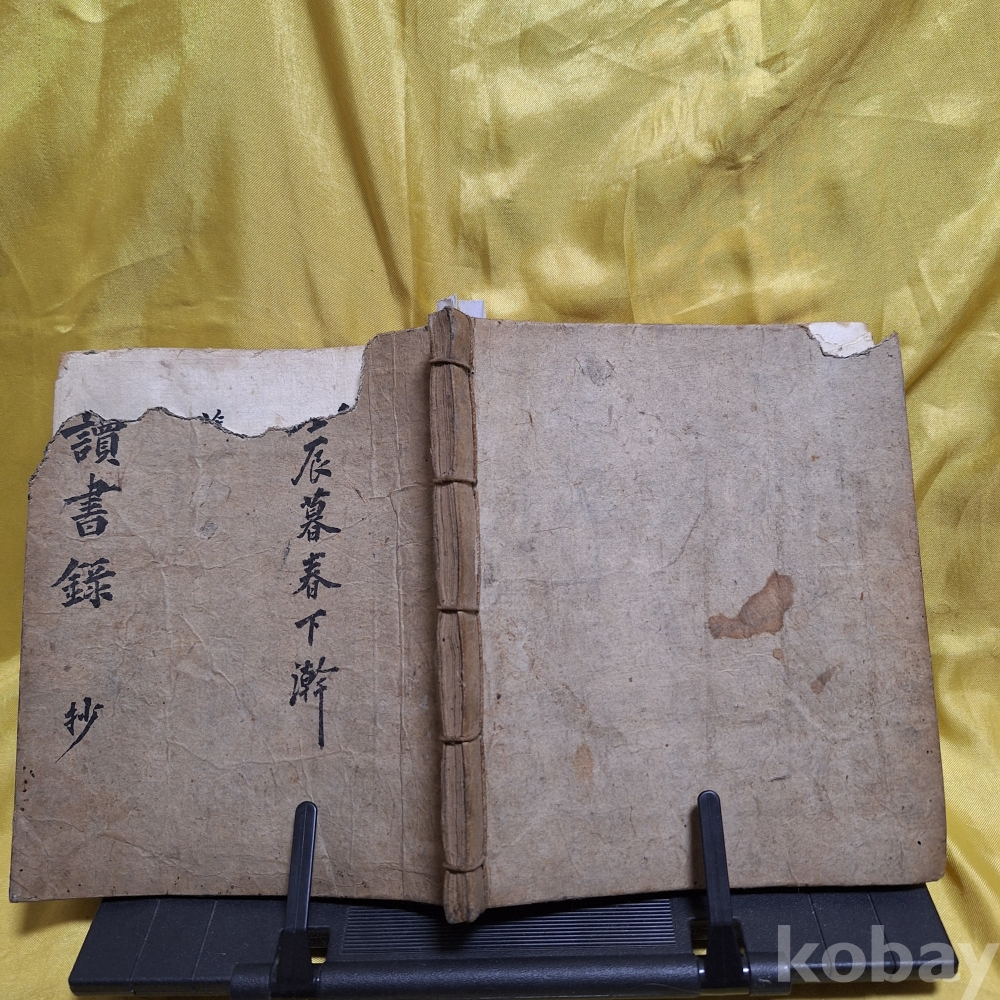 辰暮春下澣
讀書錄 抄
kobay